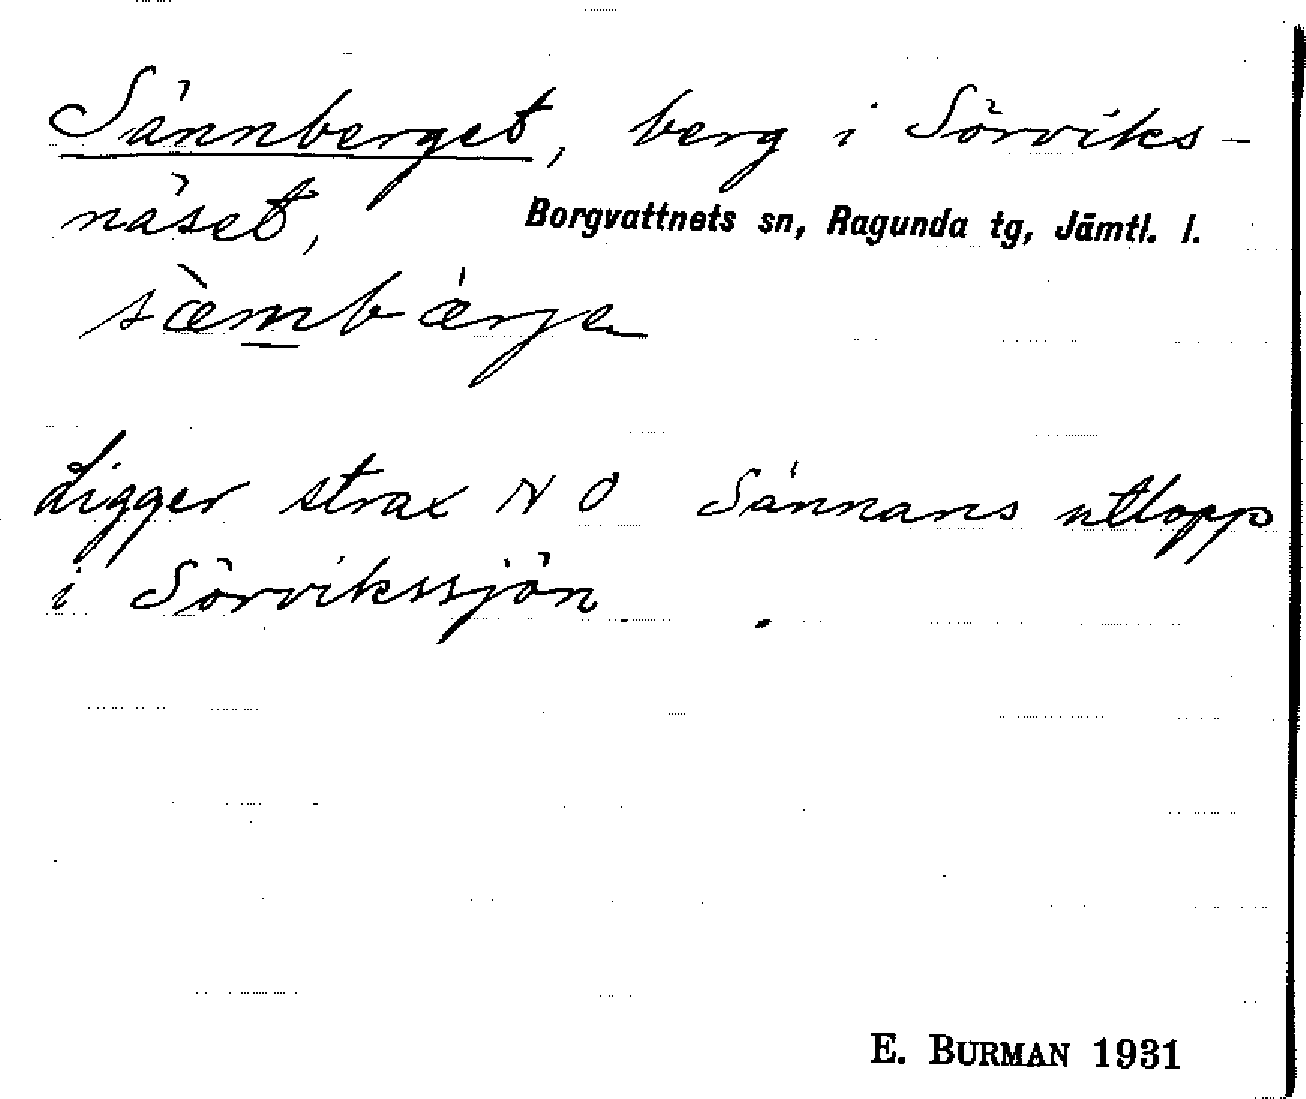 Sännberget, berg i Sörviks-
näset, Borgvattnets sn, Ragunda tg, Jämtl. l.
sæ̀mbǽrje
Ligger strax N O Sännans utlopp
i Sörvikssjön.
E. BURMAN 1931